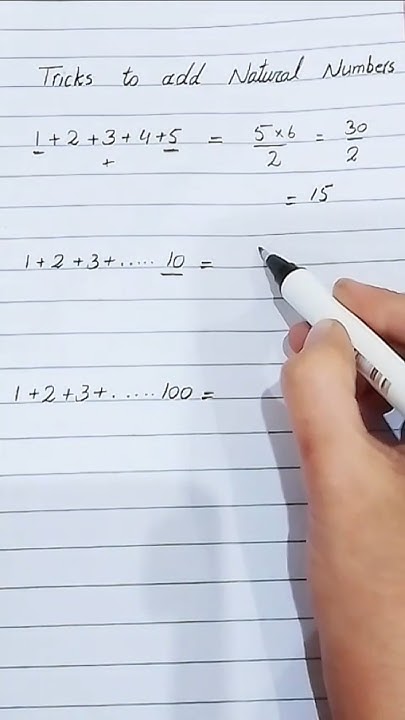 Tricks to add Natural Numbers
1 + 2 + 3 + 4 + 5 = 5 × 6 / 2 = 30 / 2
+
= 15
1 + 2 + 3 + ..... 10 =
1 + 2 + 3 + ..... 100 =